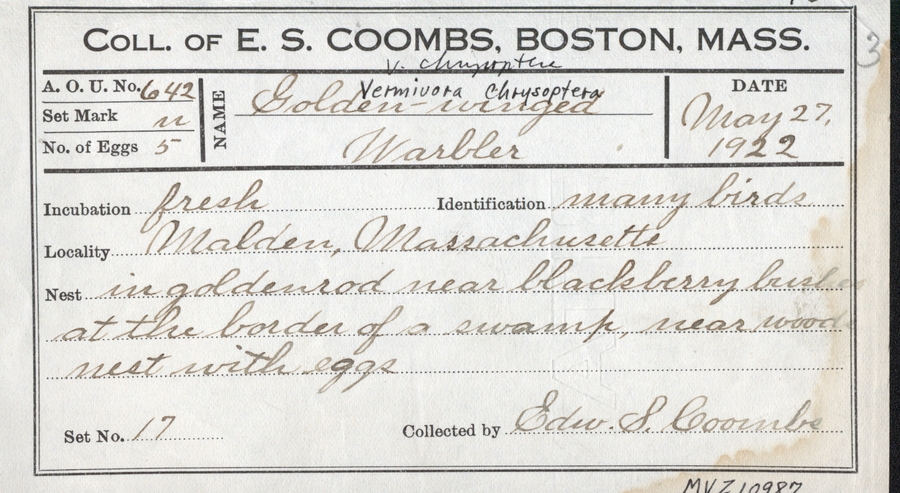 3
COLL. OF E. S. COOMBS, BOSTON, MASS.
V. chrysoptera
A. O. U. No. 642
Set Mark n
No. of Eggs 5
NAME
Vermivora Chrysoptera
Golden-winged
Warbler
DATE
May 27,
1922
Incubation fresh Identification many birds
Locality Malden, Massachusetts
Nest in goldenrod near blackberry bushes
at the border of a swamp, near woods
nest with eggs
Set No. 17 Collected by Edw. S. Coombs
MVZ10987